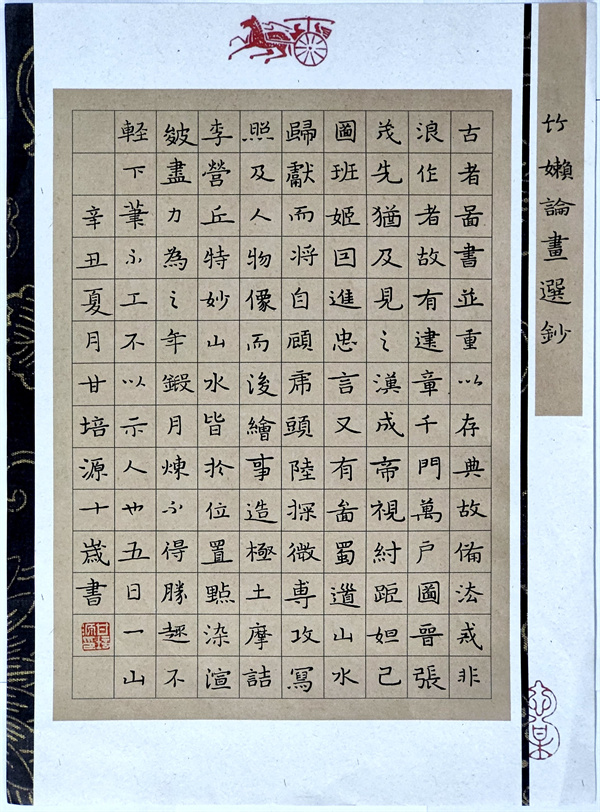 竹嬾論畫選鈔
古者啚書並重以存典故備法戒非
浪作者故有建章千門萬戶圖晉張
茂先猶及見之漢成帝視紂踞妲己
圖班姬因進忠言又有畵蜀道山水
歸獻而將自顧虎頭陸探微專攻寫
照及人物像而後繪事造極土摩詰
李營丘特妙山水皆於位置點染渲
皴盡力為之年鍛月煉不得勝趣不
輕下筆不工不以示人也五日一山
辛丑夏月甘培源十歲書